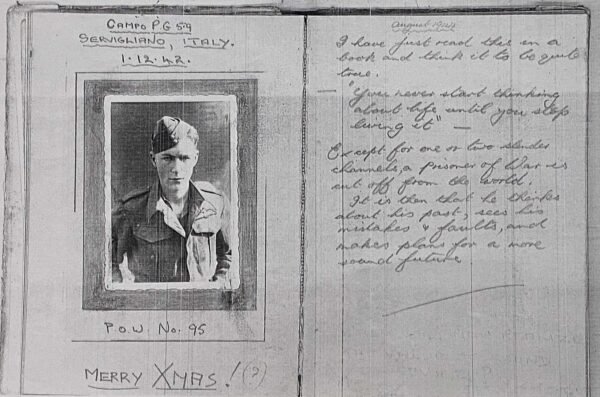 CAMPO P.G 59
SERVIGLIANO, ITALY.
1.12.42.
P.O.W. No. 95
MERRY XMAS! (?)
August 1942
I have just read this in a
book and think it to be quite
true.
— "You never start thinking
about life until you stop
living it" —
Except for one or two slender
channels, a Prisoner of War is
cut off from the world.
It is then that he thinks
about his past, sees his
mistakes & faults, and
makes plans for a more
sound future